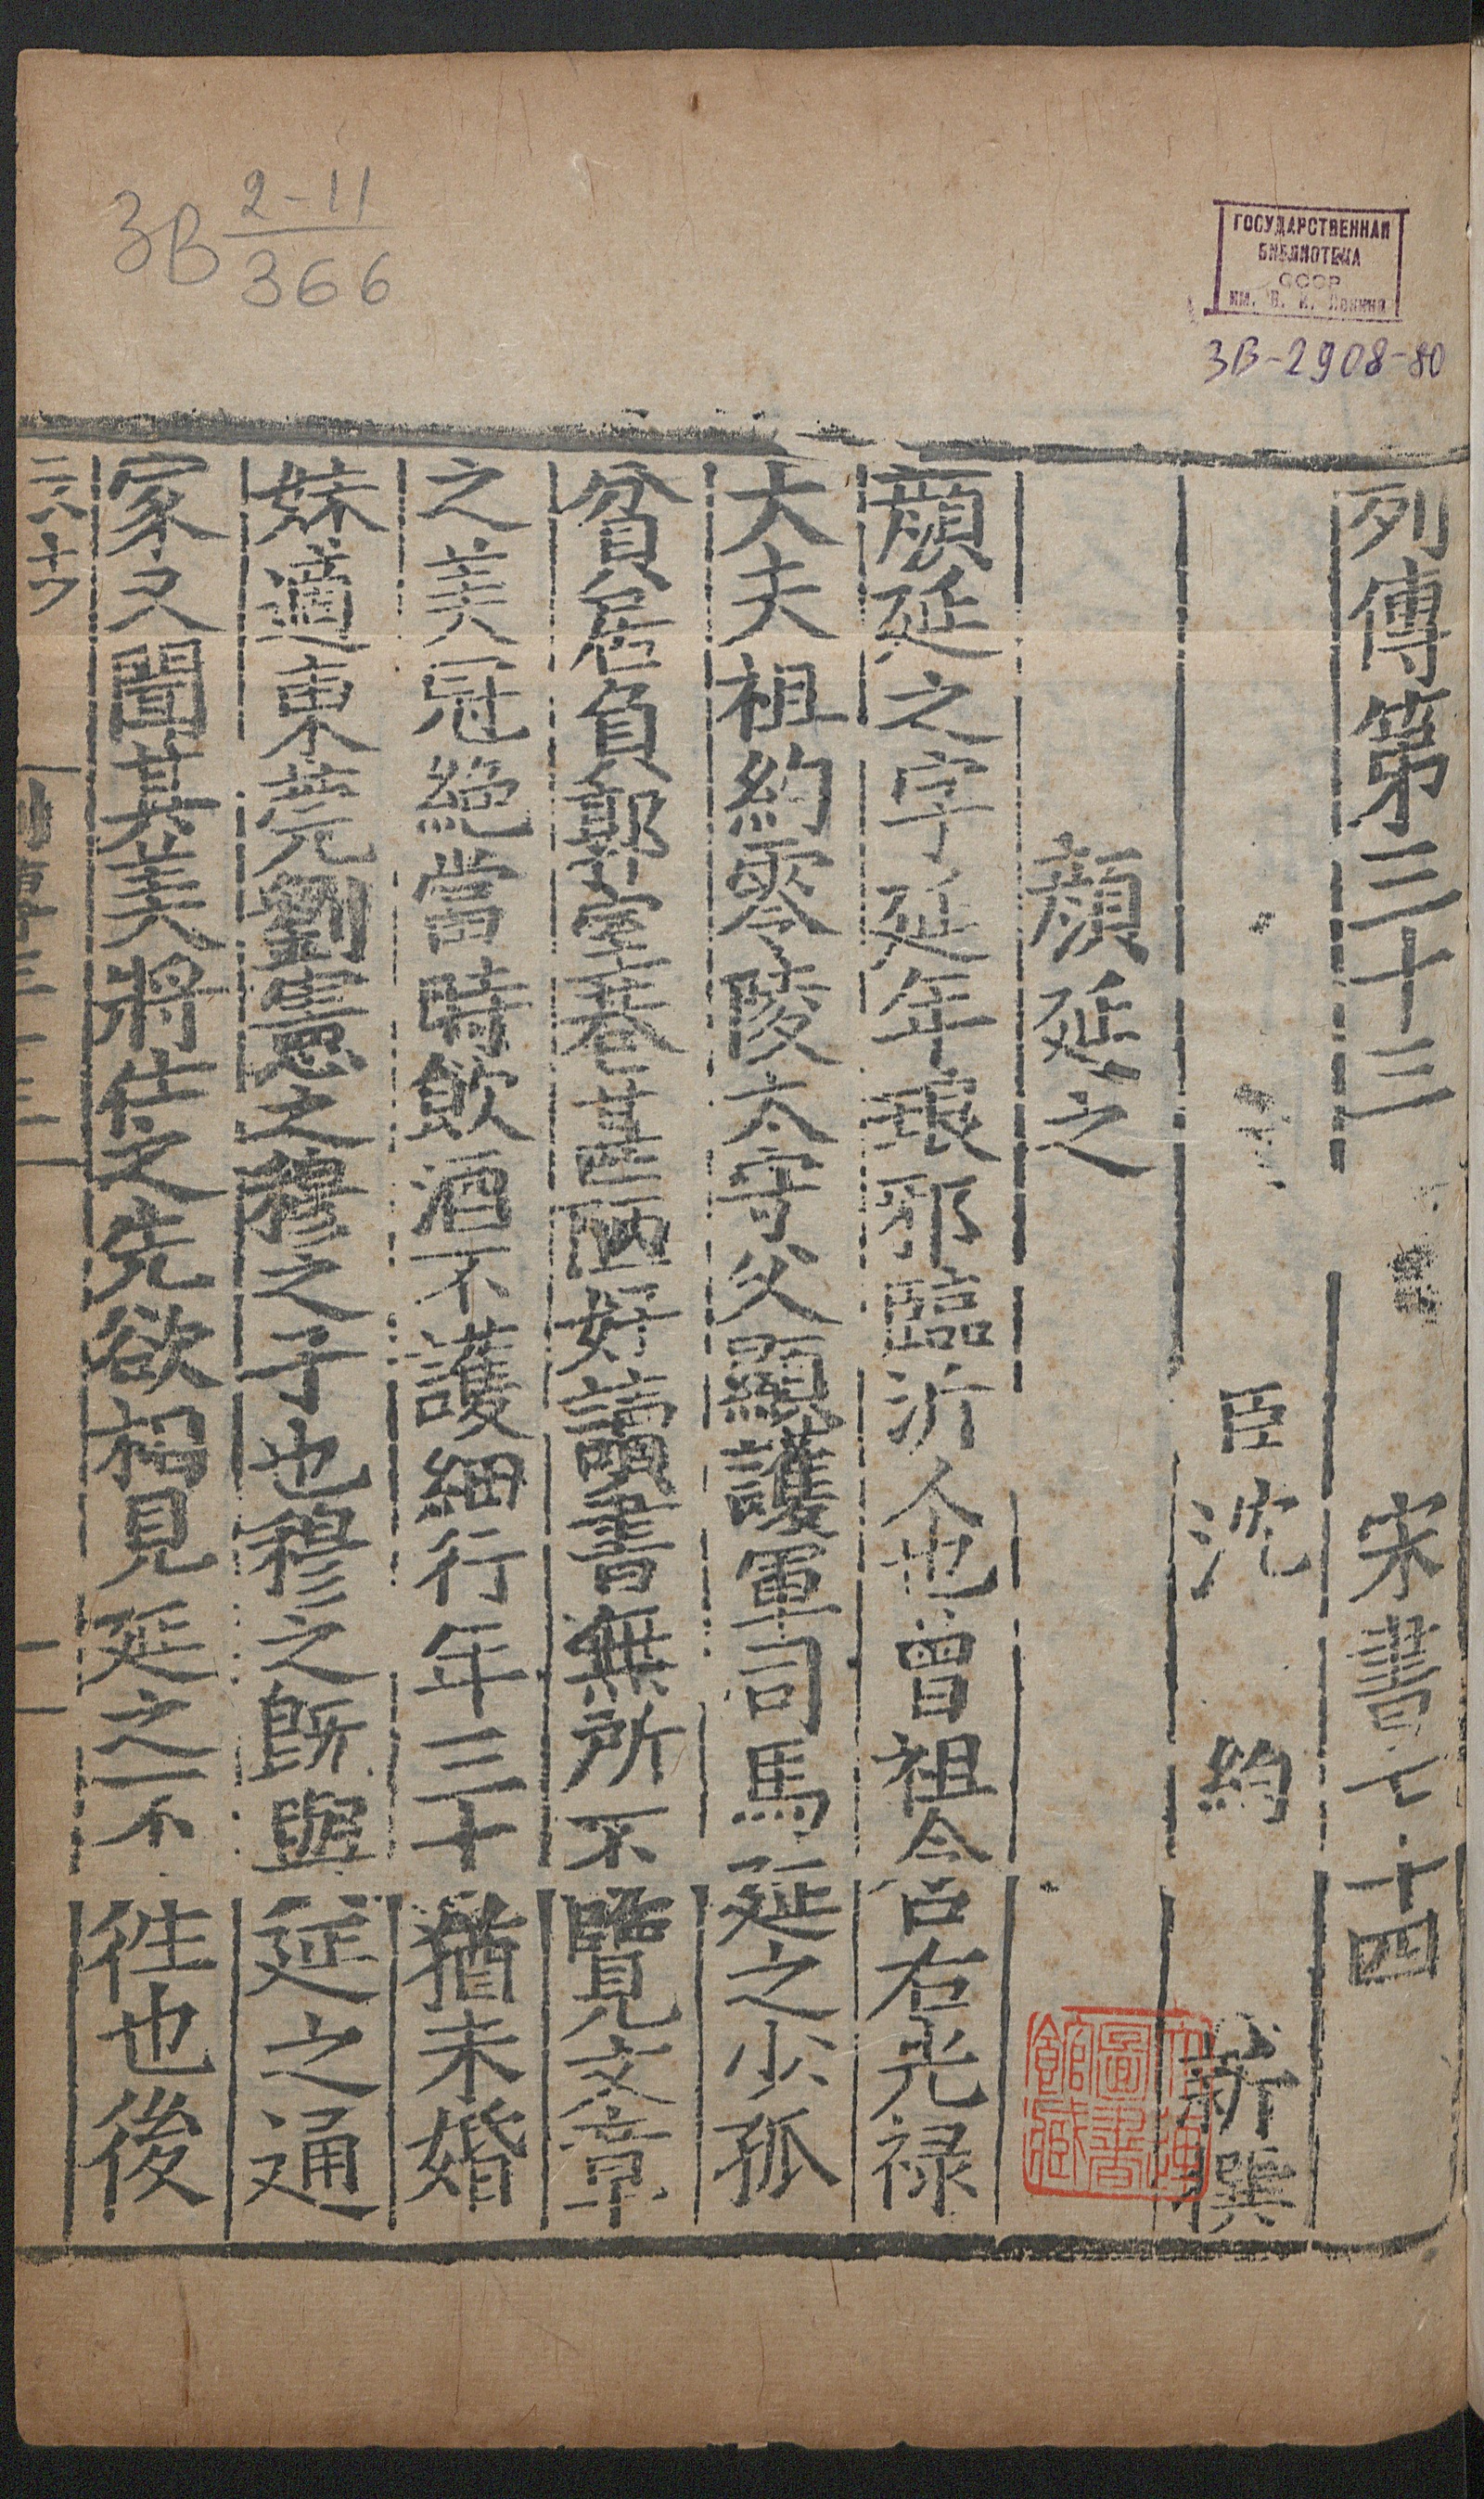 3B 2-11
366
ГОСУДАРСТВЕННАЯ
БИБЛИОТЕКА
СССР
им. В. И. Ленина
3B-2908-80
列傳第三十三 宋書七十四
臣沈 約 新撰
顔延之
顔延之字延年琅邪臨沂人也曾祖含右光禄
大夫祖約零陵太守父顯護軍司馬延之少孤
貧居負郭室巷甚陋好讀書無所不覽文章
之美冠絶當時飲酒不護細行年三十猶未婚
妹適東莞劉憲之穆之子也穆之既與延之通
家又聞其美將仕之先欲相見延之不徃也後
列傳三十三
一
圖書
館藏